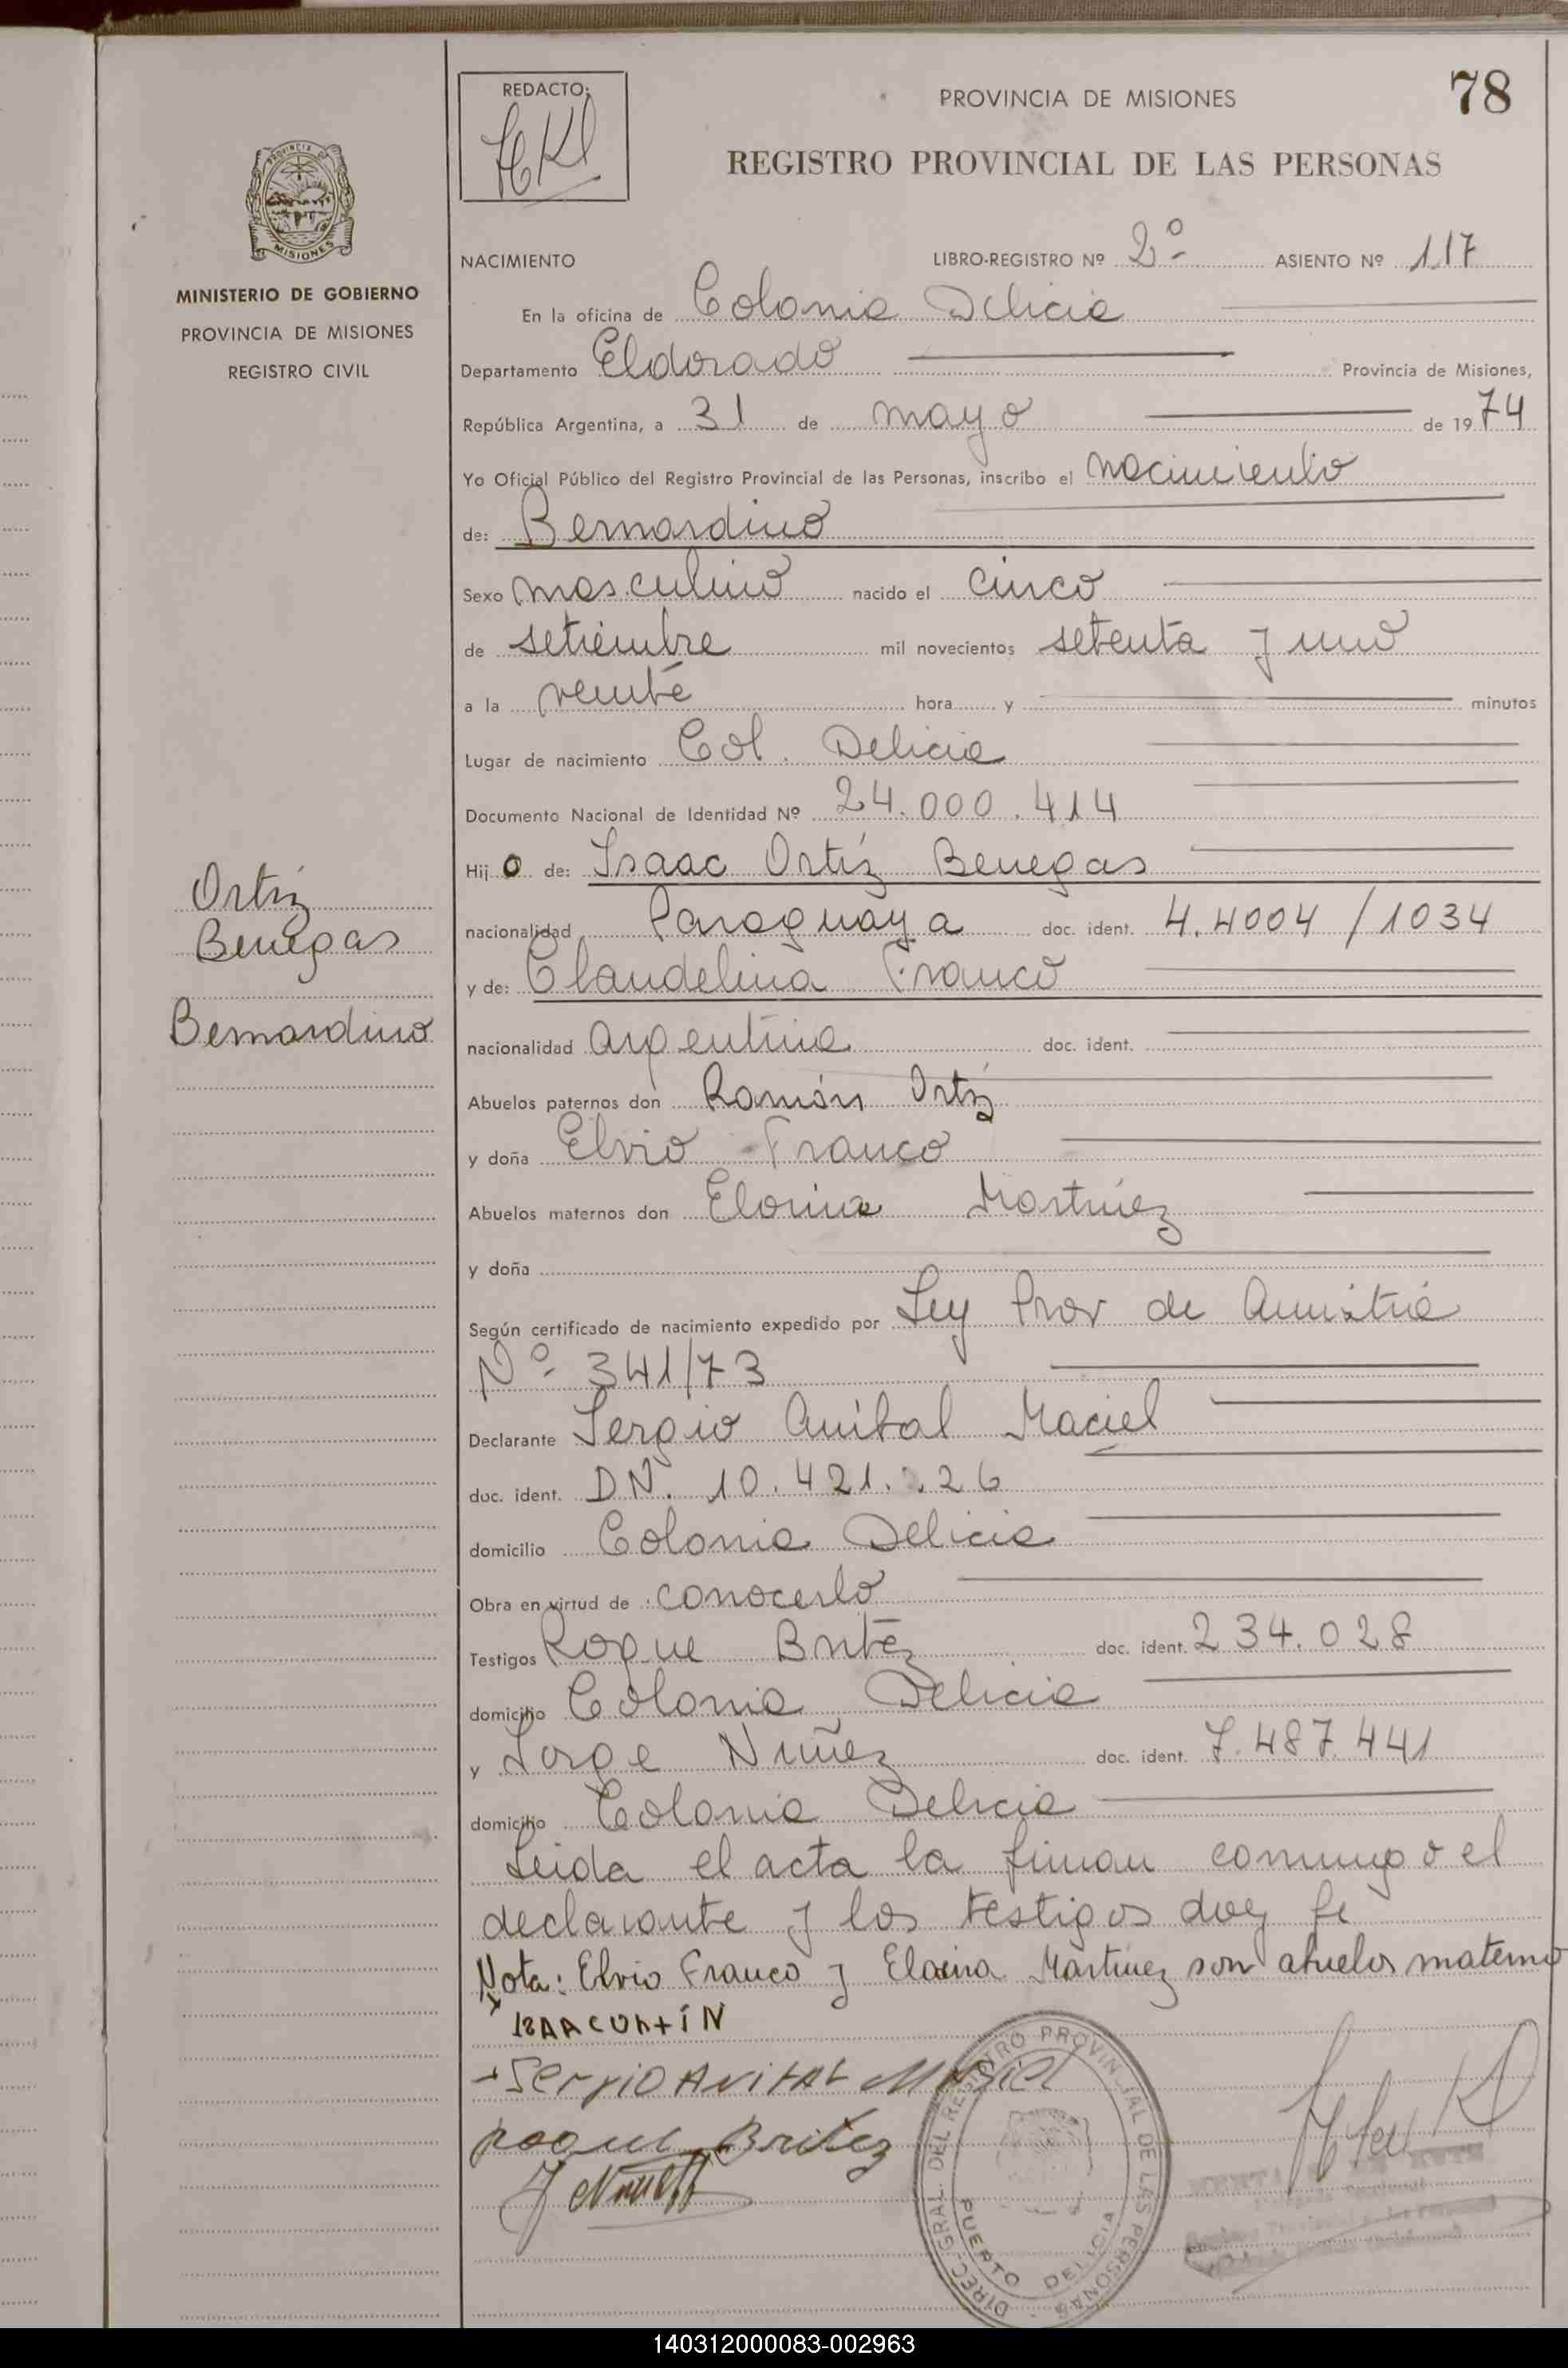 REDACTO:
HKl
PROVINCIA DE MISIONES
78
REGISTRO PROVINCIAL DE LAS PERSONAS
PROVINCIA DE MISIONES
MINISTERIO DE GOBIERNO
PROVINCIA DE MISIONES
REGISTRO CIVIL
NACIMIENTO LIBRO-REGISTRO Nº 2º ASIENTO Nº 117
En la oficina de Colonia Delicia
Departamento Eldorado Provincia de Misiones,
República Argentina, a 31 de mayo de 1974
Yo Oficial Público del Registro Provincial de las Personas, inscribo el nacimiento
de: Bernardino
Sexo masculino nacido el cinco
de setiembre mil novecientos setenta y uno
a la veinte hora y minutos
Lugar de nacimiento Col. Delicia
Documento Nacional de Identidad Nº 24.000.414
Hijo de: Isaac Ortíz Benegas
nacionalidad Paraguaya doc. ident. 4.4004/1034
y de: Claudelina Franco
nacionalidad argentina doc. ident.
Abuelos paternos don Ramón Ortíz
y doña Elvio Franco
Abuelos maternos don Elorina Martínez
y doña
Según certificado de nacimiento expedido por Ley Prov de Amnistía
Nº 341/73
Declarante Sergio Anibal Maciel
doc. ident. DN. 10.421. 26
domicilio Colonia Delicia
Obra en virtud de conocerlo
Testigos Roque Britez doc. ident. 234.028
domicilio Colonia Delicia
y Jorge Nuñez doc. ident. 7.487.441
domicilio Colonia Delicia
Leida el acta la firman conmigo el
declarante y los testigos doy fe
Nota: Elvio Franco y Martínez son abuelos materno
Sergio Anibal Maciel
Roque Britez
Ortíz
Benegas
Bernardino
DIREC. GRAL. DEL REGISTRO PROVINCIAL DE LAS PERSONAS
PUERTO DELICIA
140312000083-002963